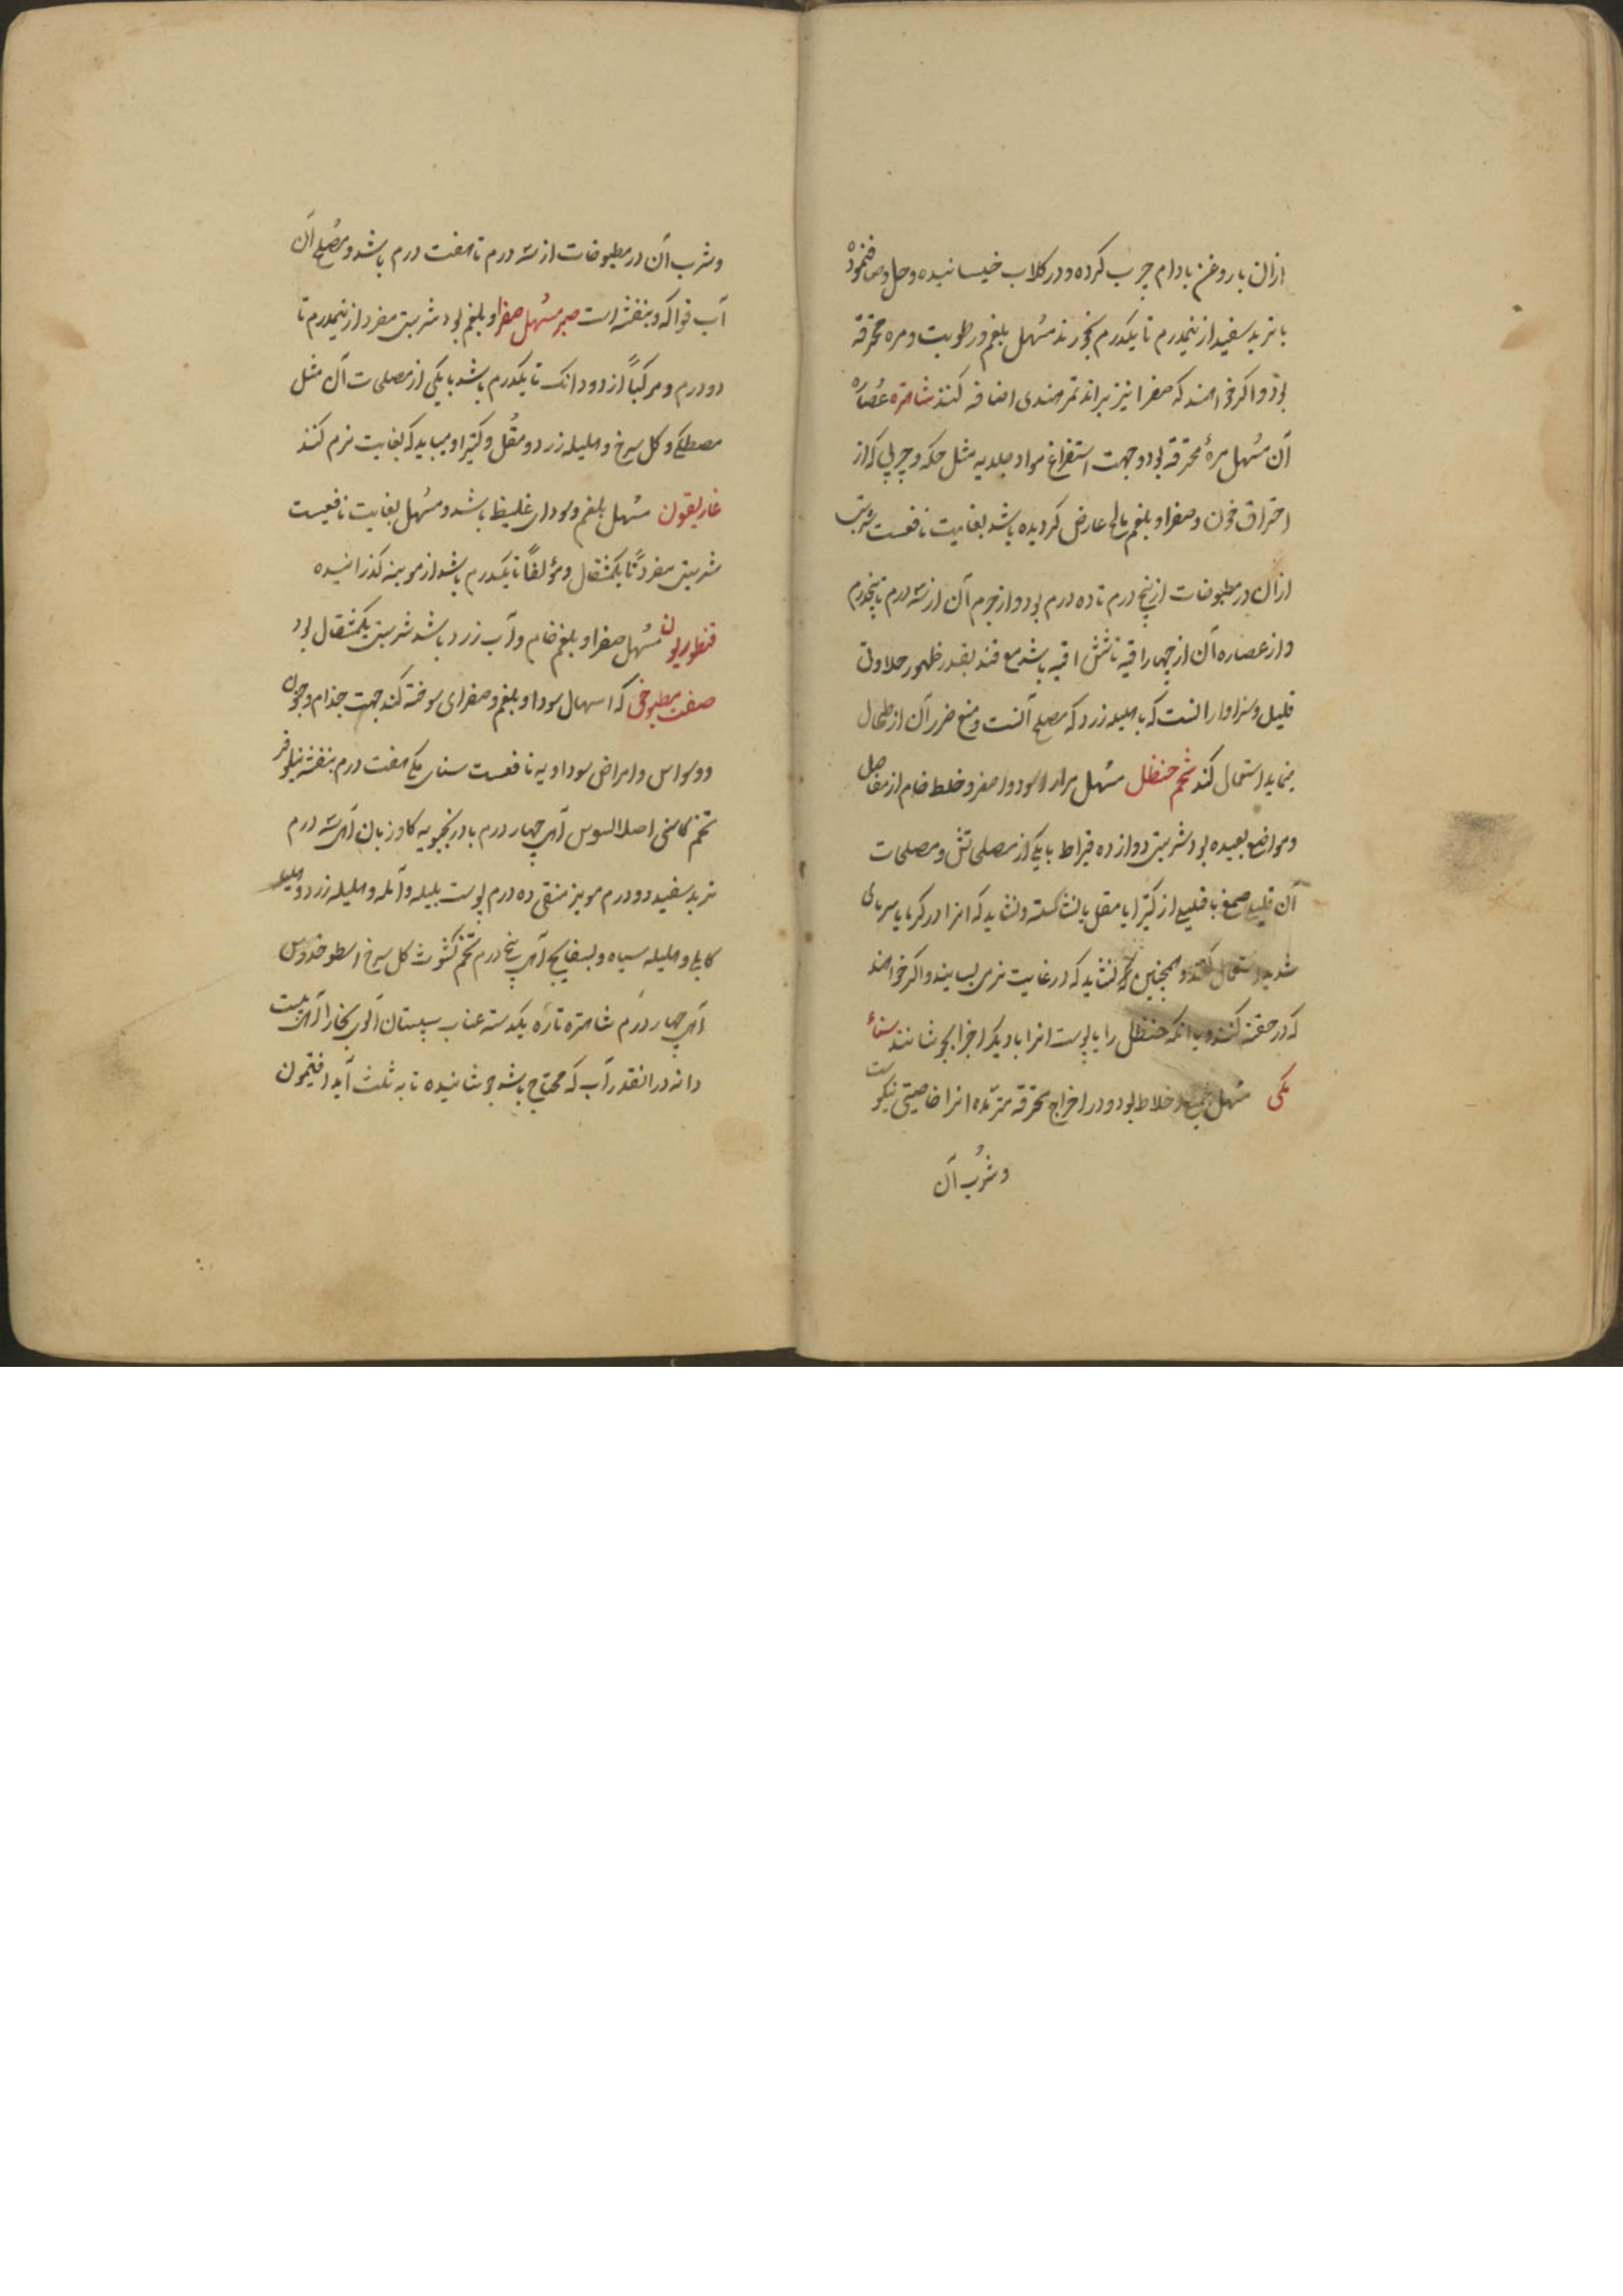 ازان با روغن بادام چرب کرده و در کلاب خیسانیده و حل و صاف نموده
با تربد سفید از نیمدرم تا یکدرم بخورند مسهل بلغم و رطوبت و مره محترقه
بود و اکر خواهند که صفرا نیز براند تمر هندی اضافه کنند شاهتره عصاره
آن مسهل مرهٔ محترقه بود و جهت استفراغ مواد جلدیه مثل حکه و جرب که از
احتراق خون و صفرا و بلغم مالح عارض کردیده باشد بغایت نافعست شربت
ازان در مطبوخات از پنج درم تا ده درم بود و از جرم آن از سه درم تا پنجدرم
و از عصاره آن از چهار اقیه تا شش اقیه باشد مع قند بقدر ظهور حلاوت
قلیل و سزاوار انست که با هلیله زرد که مصلح آنست و منع ضرر آن از طحال
مینماید استعمال کنند شحم حنظل مسهل مرار اسود و اصفر و خلط خام از مفاصل
و مواضع بعیده بود شربتی دوازده قیراط با یکی از مصلحاتش و مصلحات
آن قلیلی صمغ با قلیلی از کتیرا یا مقل یا نشاسته و نشاید که انرا در کرما یا سرمای
شدید استعمال کنند و همچنین نشاید که در غایت نرمی بسایند و اکر خواهند
که در حقنه کنند و یا انکه حنظل را با پوست انرا با دیکر اجزا بجوشانند سناء
مکی مسهل جمیع اخلاط بود و در اخراج محترقه متزیده انرا خاصیتی نیکوست
و شرب آن
و شرب آن در مطبوخات از سه درم تا هفت درم باشد و مصلح آن
آب فواکه و بنفشه است صبر مسهل صفرا و بلغم بود شربتی مفرد از نیمدرم تا
دو درم و مرکباً از دو دانک تا یکدرم باشد با یکی از مصلحات آن مثل
مصطکی و کل سرخ و هلیله زرد و مقل و کتیرا و میباید که بغایت نرم کنند
غاریقون مسهل بلغم و سودای غلیظ باشد و مسهل بغایت نافعیست
شربتی مفرداً تا یکمثقال و مؤلفاً تا یکدرم باشد از موینه کذرانیده
قنطوریون مسهل صفرا و بلغم خام و آب زرد باشد شربتی یکمثقال بود
صفت مطبوخی که اسهال سودا و بلغم و صفرای سوخته کند جهت جذام و جنون
و وسواس و امراض سوداویه نافعست سنای مکی هفت درم بنفشه نیلوفر
تخم کاسنی اصل السوس آهر چهار درم بادرنجبویه کاوزبان آهر سه درم
تربد سفید دو درم مویز منقی ده درم پوست بلیله و آمله و هلیله زرد و هلیله
کابلی و هلیله سیاه و بسفایج آهر پنج درم تخم کشوث کل سرخ اسطوخدوس
آهر چهار درم شاهتره تازه یکدسته عناب سپستان آلوی بخارا آهر بیست
دانه در انقدر آب که محتاج باشد جوشانیده تا به ثلث آید افتیمون